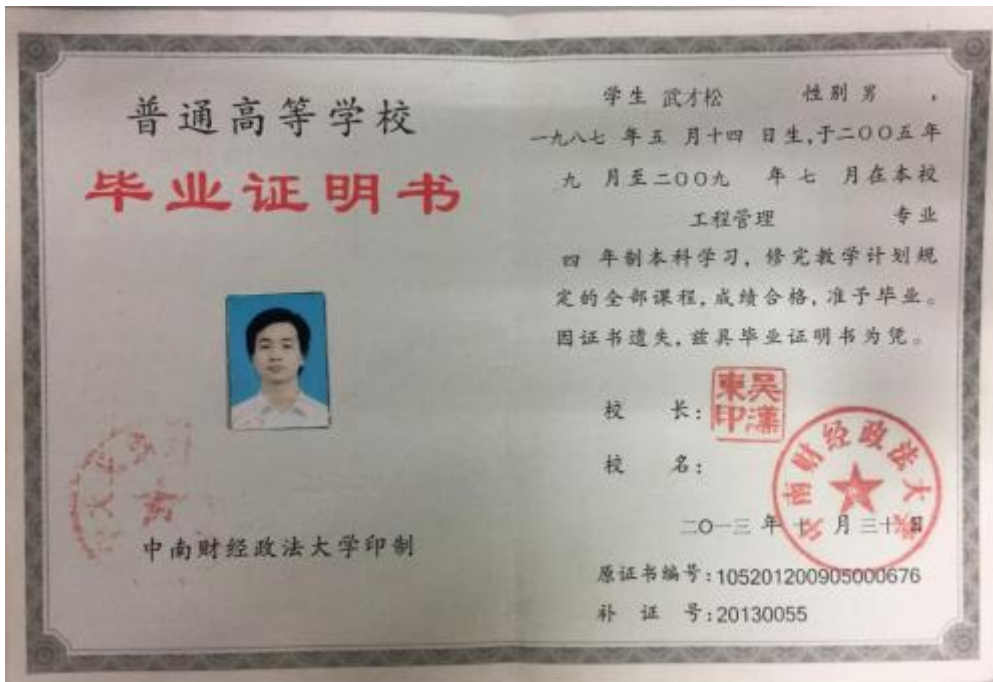 普通高等学校
毕业证明书
中南财经政法大学印制
学生 武才松 性别 男 ,
一九八七 年 五 月 十四 日生,于二〇〇五年
九 月至二〇〇九 年 七 月在本校
工程管理 专业
四 年制本科学习, 修完教学计划规
定的全部课程, 成绩合格, 准予毕业。
因证书遗失, 兹具毕业证明书为凭。
校 长:
吴漢東印
校 名:
中南财经政法大学
二〇一三 年 十 月 三十 日
原证书编号:105201200905000676
补 证 号:20130055